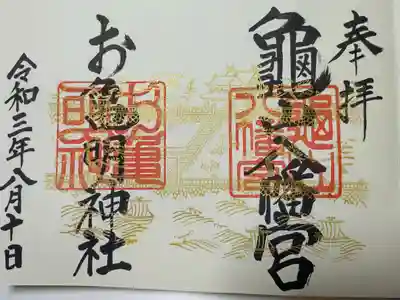 奉拝
龜山八幡宮
お亀明神社
令和三年八月十日